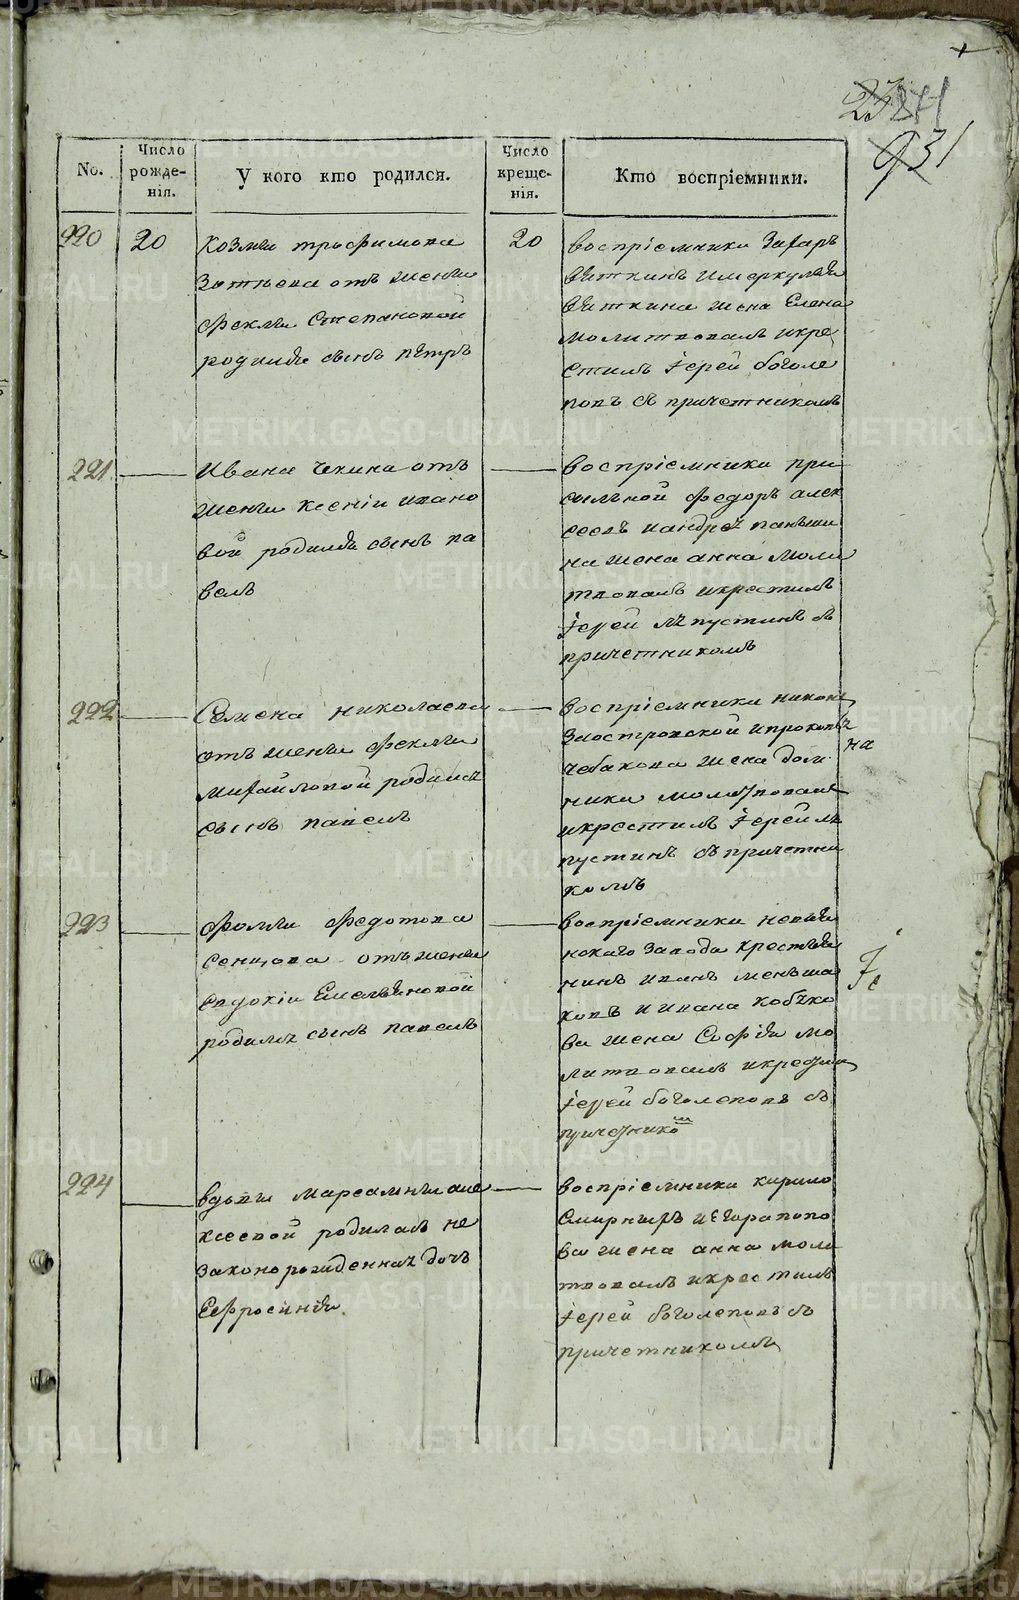 931
No.
Число рожде-нія.
У кого кто родился.
Число креще-нія.
Кто воспріемники.
220
20
Козмы трофимова
Зотѣева отъ жены
феклы Степановой
родился сынъ пѣтръ
20
воспріемники Захаръ
Вяткинъ и меркулья
Вяткина жена Елена
молитвовалъ икре
стилъ Іерей боголе
повъ съ причетникомъ
221
Ивана Чекина отъ
жены Ксеніи ивано
вой родился сынъ па
велъ
воспріемники при
сыльной федоръ алек
сеевъ и андрея паньши
на жена анна моли
твовалъ икрестилъ
Іерей лѣпустинъ съ
причетникомъ
222
Семена николаева
отъ жены феклы
михайловой родился
сынъ павелъ
воспріемники никон
Заостровской ипрокопья
чебакова жена дом
на
ники молитвовалъ
икрестилъ Іерей лѣ
пустинъ съ причетни
комъ
223
фомы федотова
Сенцова отъ жены
Евдокіи Емельяновой
родился сынъ павелъ
воспріемники невья
нскаго завода крестья
нинъ иванъ меньша
ковъ и ивана кобяко
ва жена Софья мо
литвовалъ икрести
Іерей боголеповъ съ
причетнико
224
вдовы марѳамяны але
ксеевой родилась не
законорожденная дочь
Ефросинія.
воспріемники кирило
Смирныхъ и Егора попо
ва жена анна моли
твовалъ икрестилъ
Іерей боголеповъ съ
причетникомъ
METRIKI.GASO-URAL.RU